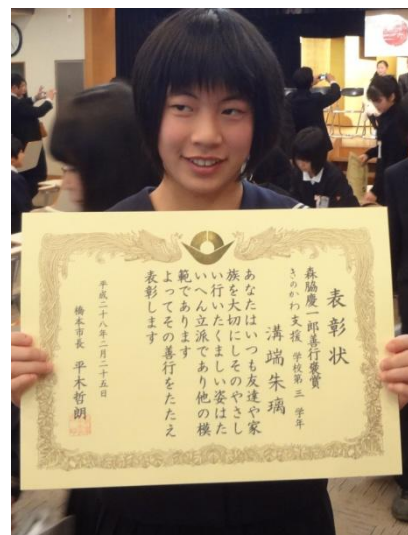 表彰状
森脇慶一郎善行褒賞
きのかわ支援 学校第 三 学年
溝端朱璃
あなたはいつも友達や家
族を大切にしそのやさし
い行いたくましい姿はた
いへん立派であり他の模
範であります
よってその善行をたたえ
表彰します
平成二十八年二月二十五日
橋本市長 平木哲朗